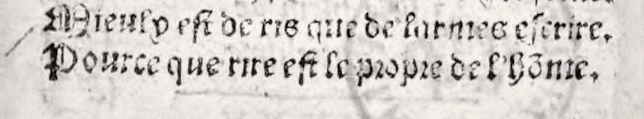 Mieulx est de ris que de larmes escrire,
Pource que rire est le propre de l'hõme.